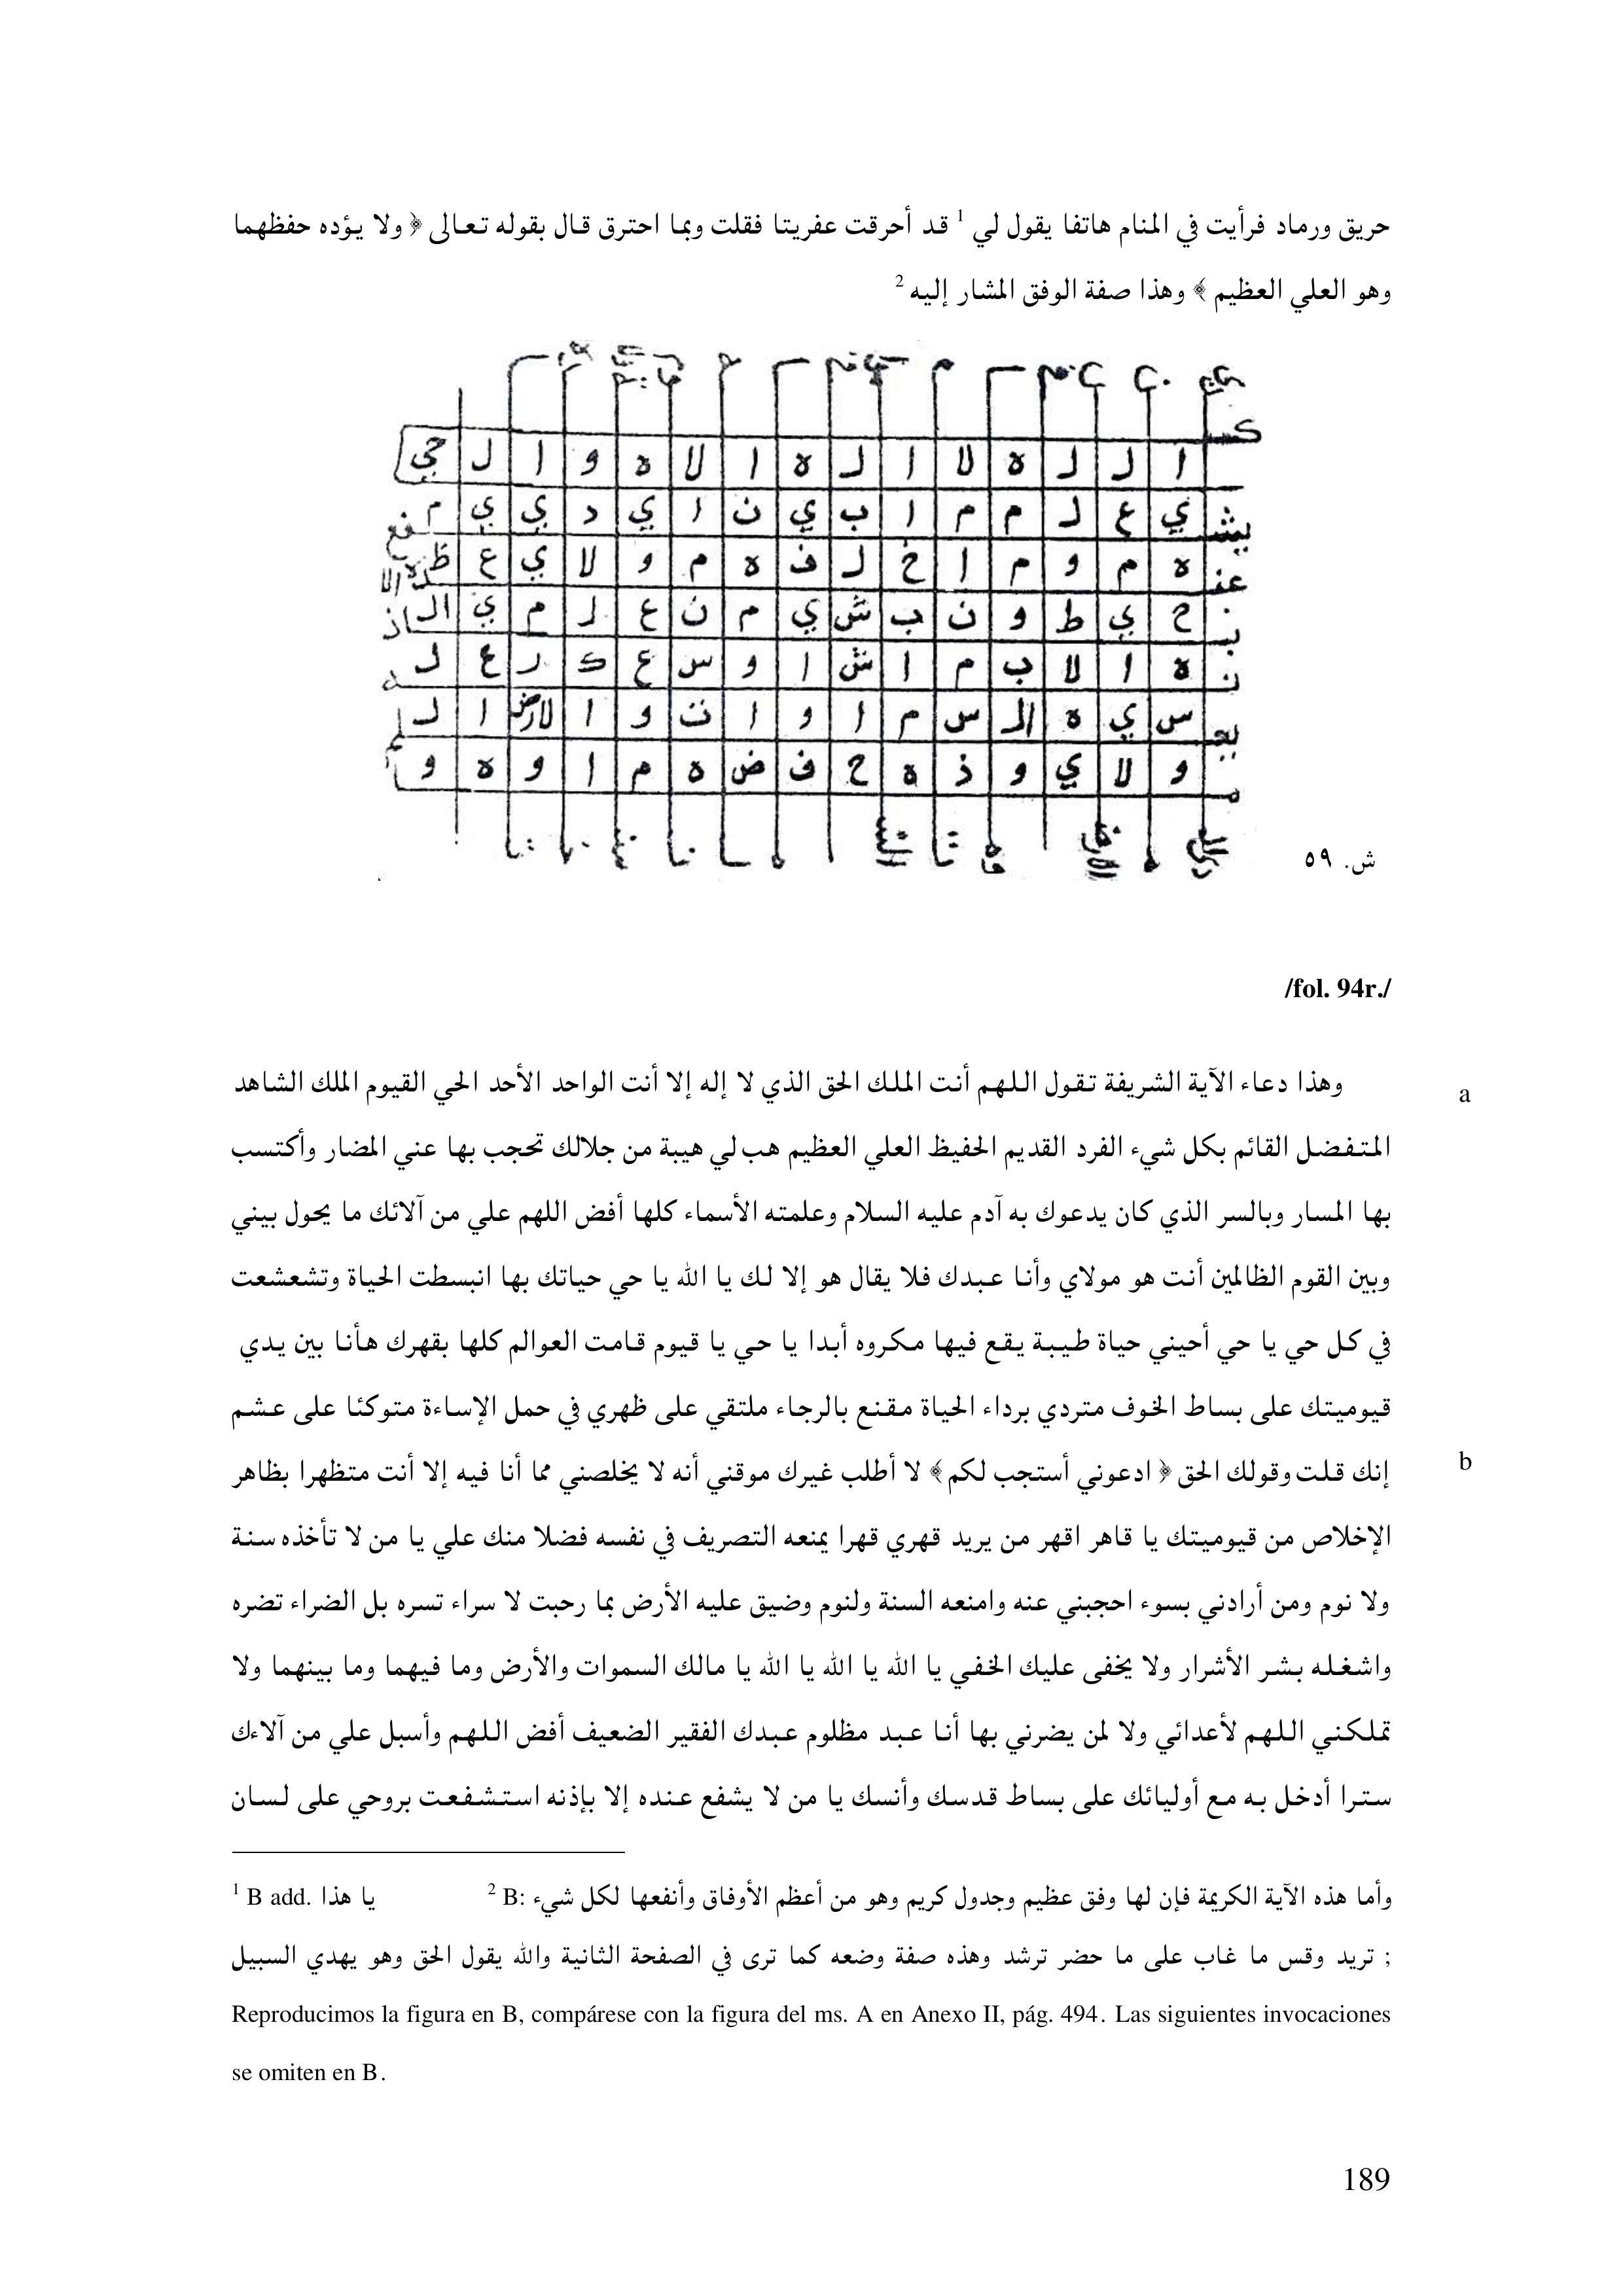 حريق ورماد فرأيت في المنام هاتفا يقول لي 1 قد أحرقت عفريتا فقلت وبما احترق قال بقوله تعالى ﴿ ولا يؤده حفظهما
وهو العلي العظيم ﴾ وهذا صفة الوفق المشار إليه 2
ا ل ل ه لا ا ل ه ا لا ه و ا ل حي
ي ع ل م م ا ب ي ن ا ي د ي ي م
ه م و م ا خ ل ف ه م و لا ي ع ظ
ح ي ط و ن ب ش ي م ن ع ل م ي ال
ه ا لا ب م ا ش ا و س ع ك ر ع ل
س ي ه ال س م ا و ا ت و ا لارض ا ل
و لا ي و ذ ه ح ف ض ه م ا و ه و
ش. ٥٩
/fol. 94r./
وهذا دعاء الآية الشريفة تقول اللهم أنت الملك الحق الذي لا إله إلا أنت الواحد الأحد الحي القيوم الملك الشاهد
a
المتفضل القائم بكل شيء الفرد القديم الحفيظ العلي العظيم هب لي هيبة من جلالك تحجب بها عني المضار وأكتسب
بها المسار وبالسر الذي كان يدعوك به آدم عليه السلام وعلمته الأسماء كلها أفض اللهم علي من آلائك ما يحول بيني
وبين القوم الظالمين أنت هو مولاي وأنا عبدك فلا يقال هو إلا لك يا الله يا حي حياتك بها انبسطت الحياة وتشعشعت
في كل حي يا حي أحيني حياة طيبة يقع فيها مكروه أبدا يا حي يا قيوم قامت العوالم كلها بقهرك هأنا بين يدي
قيوميتك على بساط الخوف متردي برداء الحياة مقنع بالرجاء ملتقي على ظهري في حمل الإساءة متوكئا على عشم
إنك قلت وقولك الحق ﴿ ادعوني أستجب لكم ﴾ لا أطلب غيرك موقني أنه لا يخلصني مما أنا فيه إلا أنت متظهرا بظاهر
b
الإخلاص من قيوميتك يا قاهر اقهر من يريد قهري قهرا يمنعه التصريف في نفسه فضلا منك علي يا من لا تأخذه سنة
ولا نوم ومن أرادني بسوء احجبني عنه وامنعه السنة ولنوم وضيق عليه الأرض بما رحبت لا سراء تسره بل الضراء تضره
واشغله بشر الأشرار ولا يخفى عليك الخفي يا الله يا الله يا الله يا مالك السموات والأرض وما فيهما وما بينهما ولا
تملكني اللهم لأعدائي ولا لمن يضرني بها أنا عبد مظلوم عبدك الفقير الضعيف أفض اللهم وأسبل علي من آلاءك
سترا أدخل به مع أوليائك على بساط قدسك وأنسك يا من لا يشفع عنده إلا بإذنه استشفعت بروحي على لسان
1 B add. يا هذا 2 B: وأما هذه الآية الكريمة فإن لها وفق عظيم وجدول كريم وهو من أعظم الأوفاق وأنفعها لكل شيء
تريد وقس ما غاب على ما حضر ترشد وهذه صفة وضعه كما ترى في الصفحة الثانية والله يقول الحق وهو يهدي السبيل ;
Reproducimos la figura en B, compárese con la figura del ms. A en Anexo II, pág. 494. Las siguientes invocaciones
se omiten en B.
189